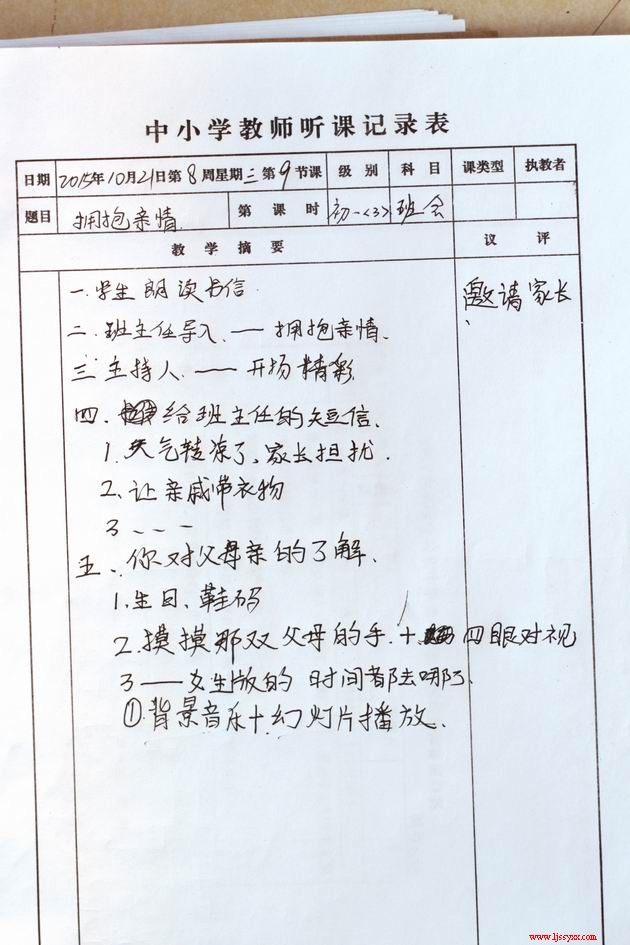 中小学教师听课记录表
日期 2015年10月21日第8周星期三第9节课 级别 科目 课类型 执教者
题目 拥抱亲情 第 课时 初一<3> 班会
教学摘要 议评
一.学生朗读书信
二.班主任导入.——拥抱亲情.
三主持人.——开场精彩
四.给班主任的短信.
1.天气转凉了、家长担扰.
2.让亲戚带衣物
3、、、
五、你对父母亲的了解、
1.生日、鞋码
2.摸摸那双父母的手.+四眼对视
3——女生版的时间都去哪了.
①.背景音乐+幻灯片播放.
邀请家长
www.ljssyxx.com